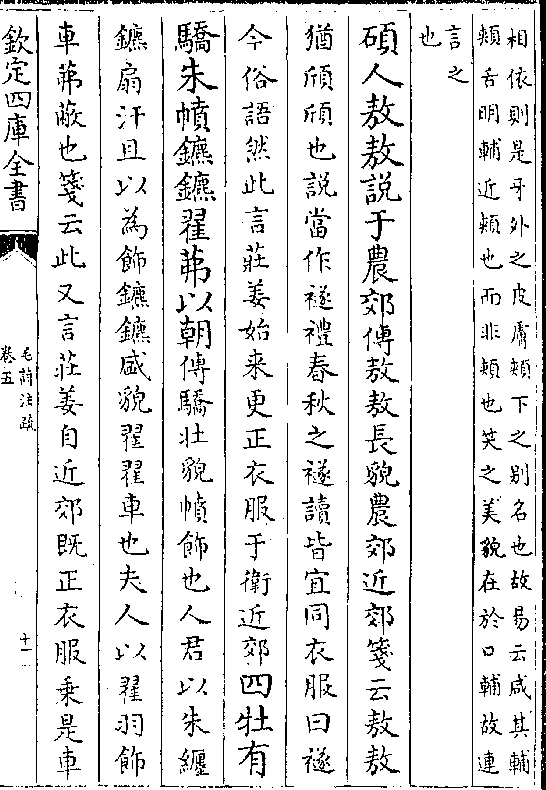 相依則是牙外之皮膚頰下之别名也故易云咸其輔
頰舌明輔近頰也而非頰也笑之美貌在於口輔故連
言之
也
碩人敖敖説于農郊傳敖敖長貌農郊近郊箋云敖敖
猶頎頎也説當作襚禮春秋之襚讀皆宜同衣服曰襚
今俗語然此言莊姜始来更正衣服于衛近郊四牡有
驕朱幩鑣鑣翟茀以朝傳驕壮貌幩飾也人君以朱纏
鑣扇汗且以為飾鑣鑣盛貌翟翟車也夫人以翟羽飾
車茀蔽也箋云此又言莊姜自近郊既正衣服乗是車
欽定四庫全書
毛詩注疏
卷五
十一